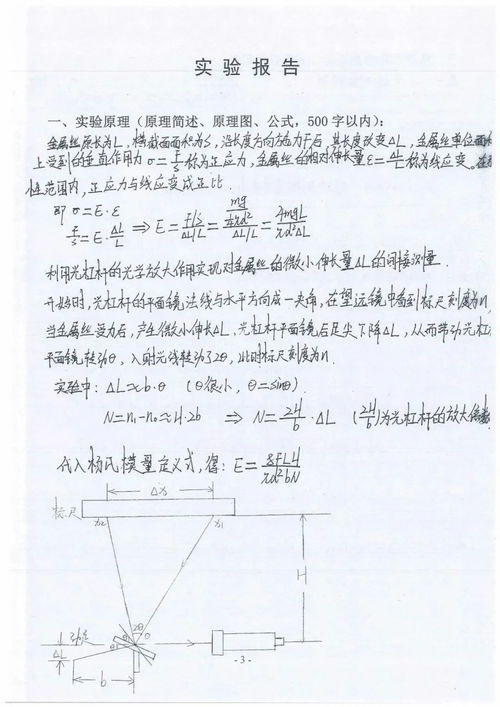 实验报告
一、实验原理（原理简述、原理图、公式，500字以内）：
金属丝原长为L，横截面面积为S，沿长度方向施力F后，其长度改变ΔL，金属丝单位面积
上受到的垂直作用力σ=F/S称为正应力，金属丝的相对伸长量ε=ΔL/L称为线应变。在弹
性范围内，正应力与线应变成正比．
即 σ=E·ε
F/S=E·ΔL/L ⇒ E=(F/S)/(ΔL/L)=(mg/(¼πd²))/(ΔL/L)=4mgL/(πd²ΔL)
利用光杠杆的光学放大作用实现对金属丝的微小伸长量ΔL的间接测量．
开始时，光杠杆的平面镜法线与水平方向成一夹角，在望远镜中看到标尺刻度为n，
当金属丝受力后，产生微小伸长ΔL，光杠杆平面镜后足尖下降ΔL，从而带动光杠
平面镜转动θ，入射光线转动了2θ，此时标尺刻度为n．
实验中：ΔL≈b·θ （θ很小，θ=sinθ）
N=n₁-n₀≈H·2θ ⇒ N=2H/b·ΔL （2H/b）为光杠杆的放大倍数
代入杨氏模量定义式，得：E=8FLH/(πd²bN)
ΔX
标尺
x₂ x₁
H
2θ
θ θ
动足
ΔL θ
b
- 3 -